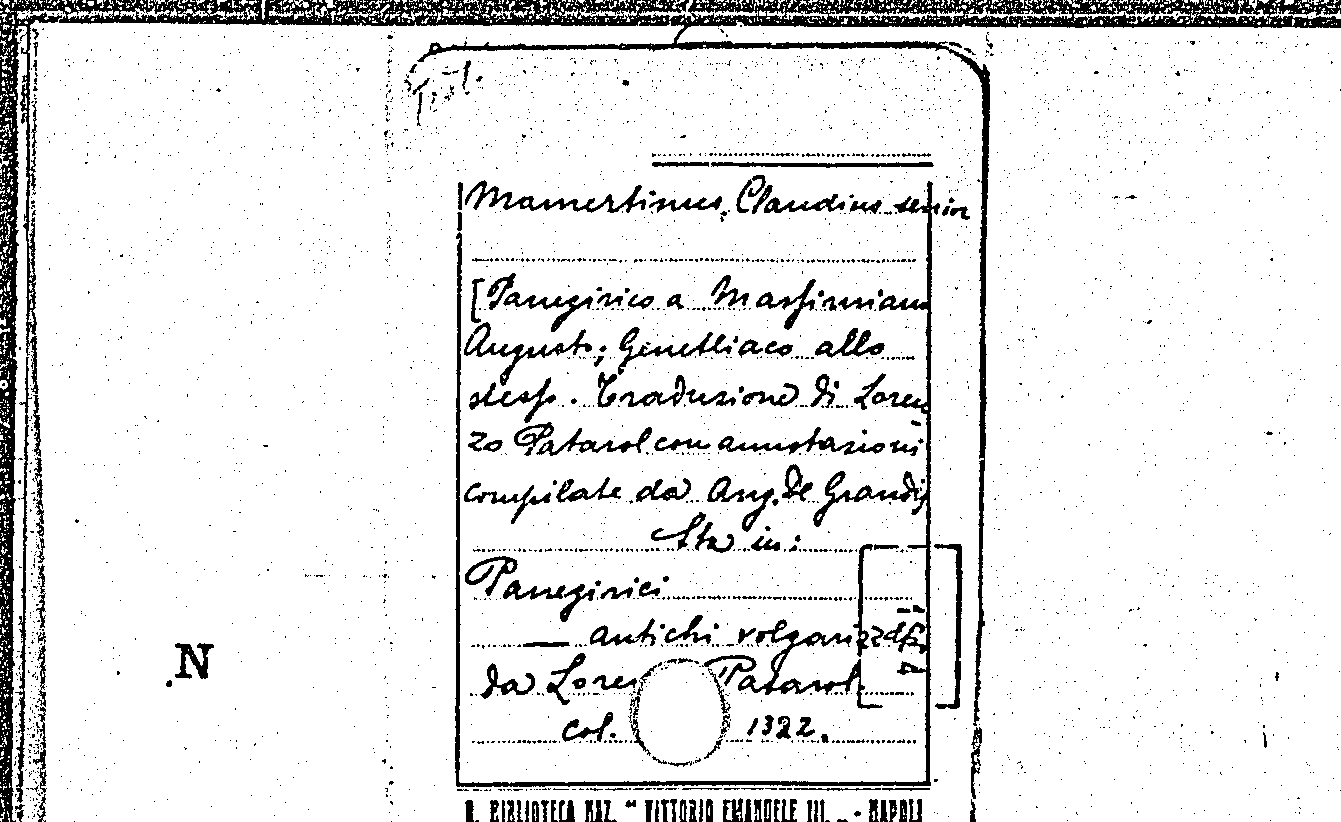 Test.
Mamertinus, Claudius senior
[Panegirico a Massimiano
Augusto; Genetliaco allo
stesso. Traduzione di Loren
zo Patarol con annotazioni
compilate da Ang. De Grandis
Sta in:
Panegirici
— antichi volgarizzati
da Lorenzo Patarol.
col. 1322.
N
R. BIBLIOTECA NAZ. “ VITTORIO EMANUELE III. „ - NAPOLI